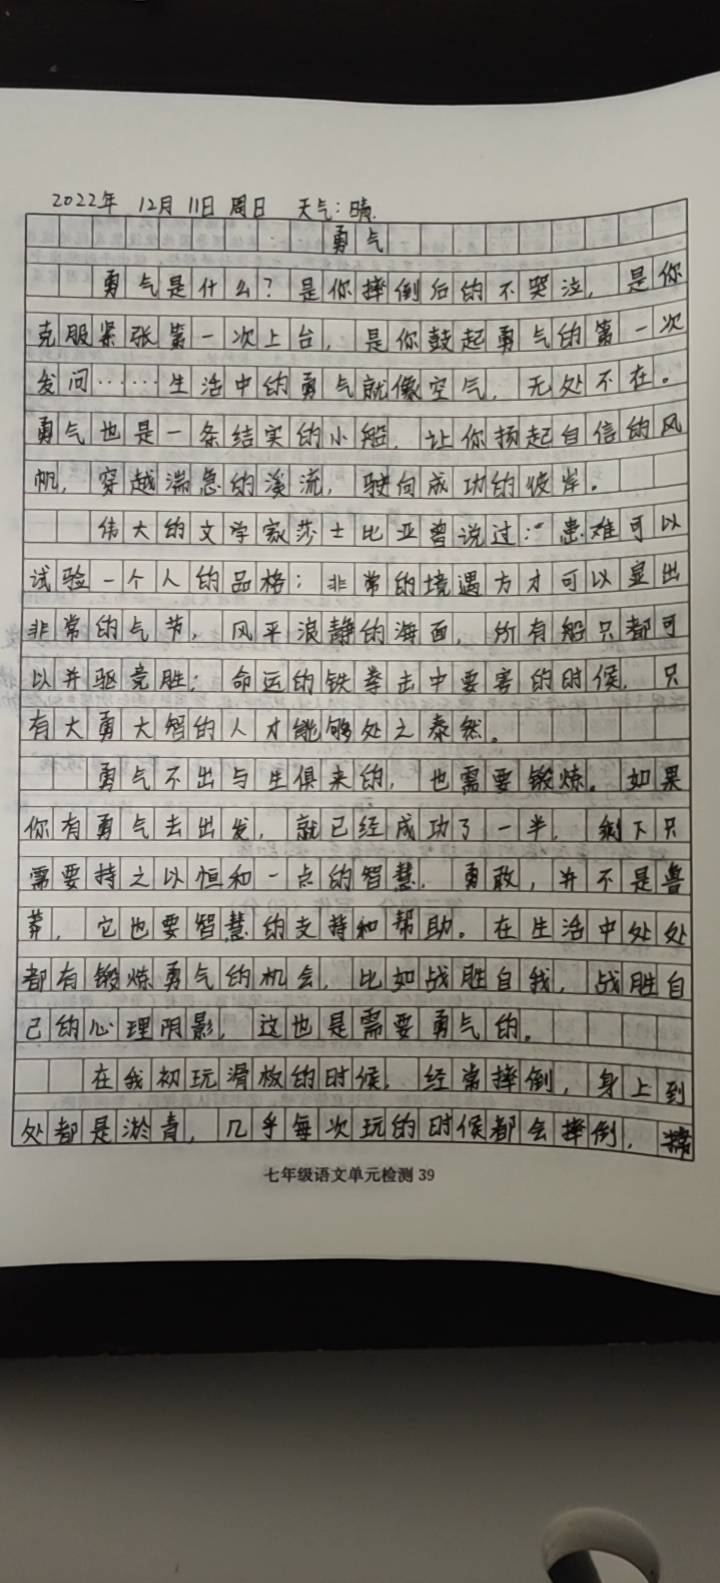 2022年 12月 11日 周日 天气：晴.
勇气
勇气是什么？是你摔倒后的不哭泣，是你
克服紧张第一次上台，是你鼓起勇气的第一次
发问……生活中的勇气就像空气，无处不在。
勇气也是一条结实的小船，让你扬起自信的风
帆，穿越湍急的溪流，驶向成功的彼岸。
伟大的文学家莎士比亚曾说过：“患难可以
试验一个人的品格；非常的境遇方才可以显出
非常的气节，风平浪静的海面，所有船只都可
以并驱竞胜；命运的铁拳击中要害的时候，只
有大勇大智的人才能够处之泰然。
勇气不出与生俱来的，也需要锻炼。如果
你有勇气去出发，就已经成功了一半，剩下只
需要持之以恒和一点的智慧，勇敢，并不是鲁
莽，它也要智慧的支持和帮助。在生活中处处
都有锻炼勇气的机会，比如战胜自我，战胜自
己的心理阴影，这也是需要勇气的。
在我初玩滑板的时候，经常摔倒，身上到
处都是淤青，几乎每次玩的时候都会摔倒，
七年级语文单元检测 39